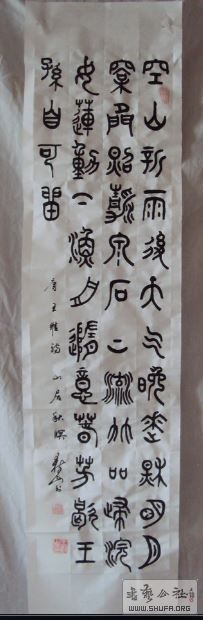 空山新雨後天气晚來秋明月
松間照清泉石上流竹喧歸浣
女蓮動下漁舟隨意春芳歇王
孫自可留
唐王維詩 山居秋暝
书艺公社
WWW.SHUFA.ORG